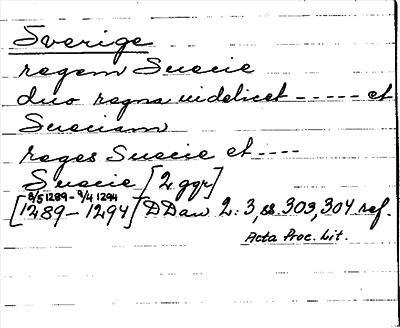 Sverige
regem Suecie
duo regna videlicet ----- et
Sueciam
reges Suecie et ----
Suecie [2 ggr]
8/5 1289 - 9/4 1294
[1289 - 1294] DDan 2:3, ss 303, 304 ref.
Acta Proc. Lit.